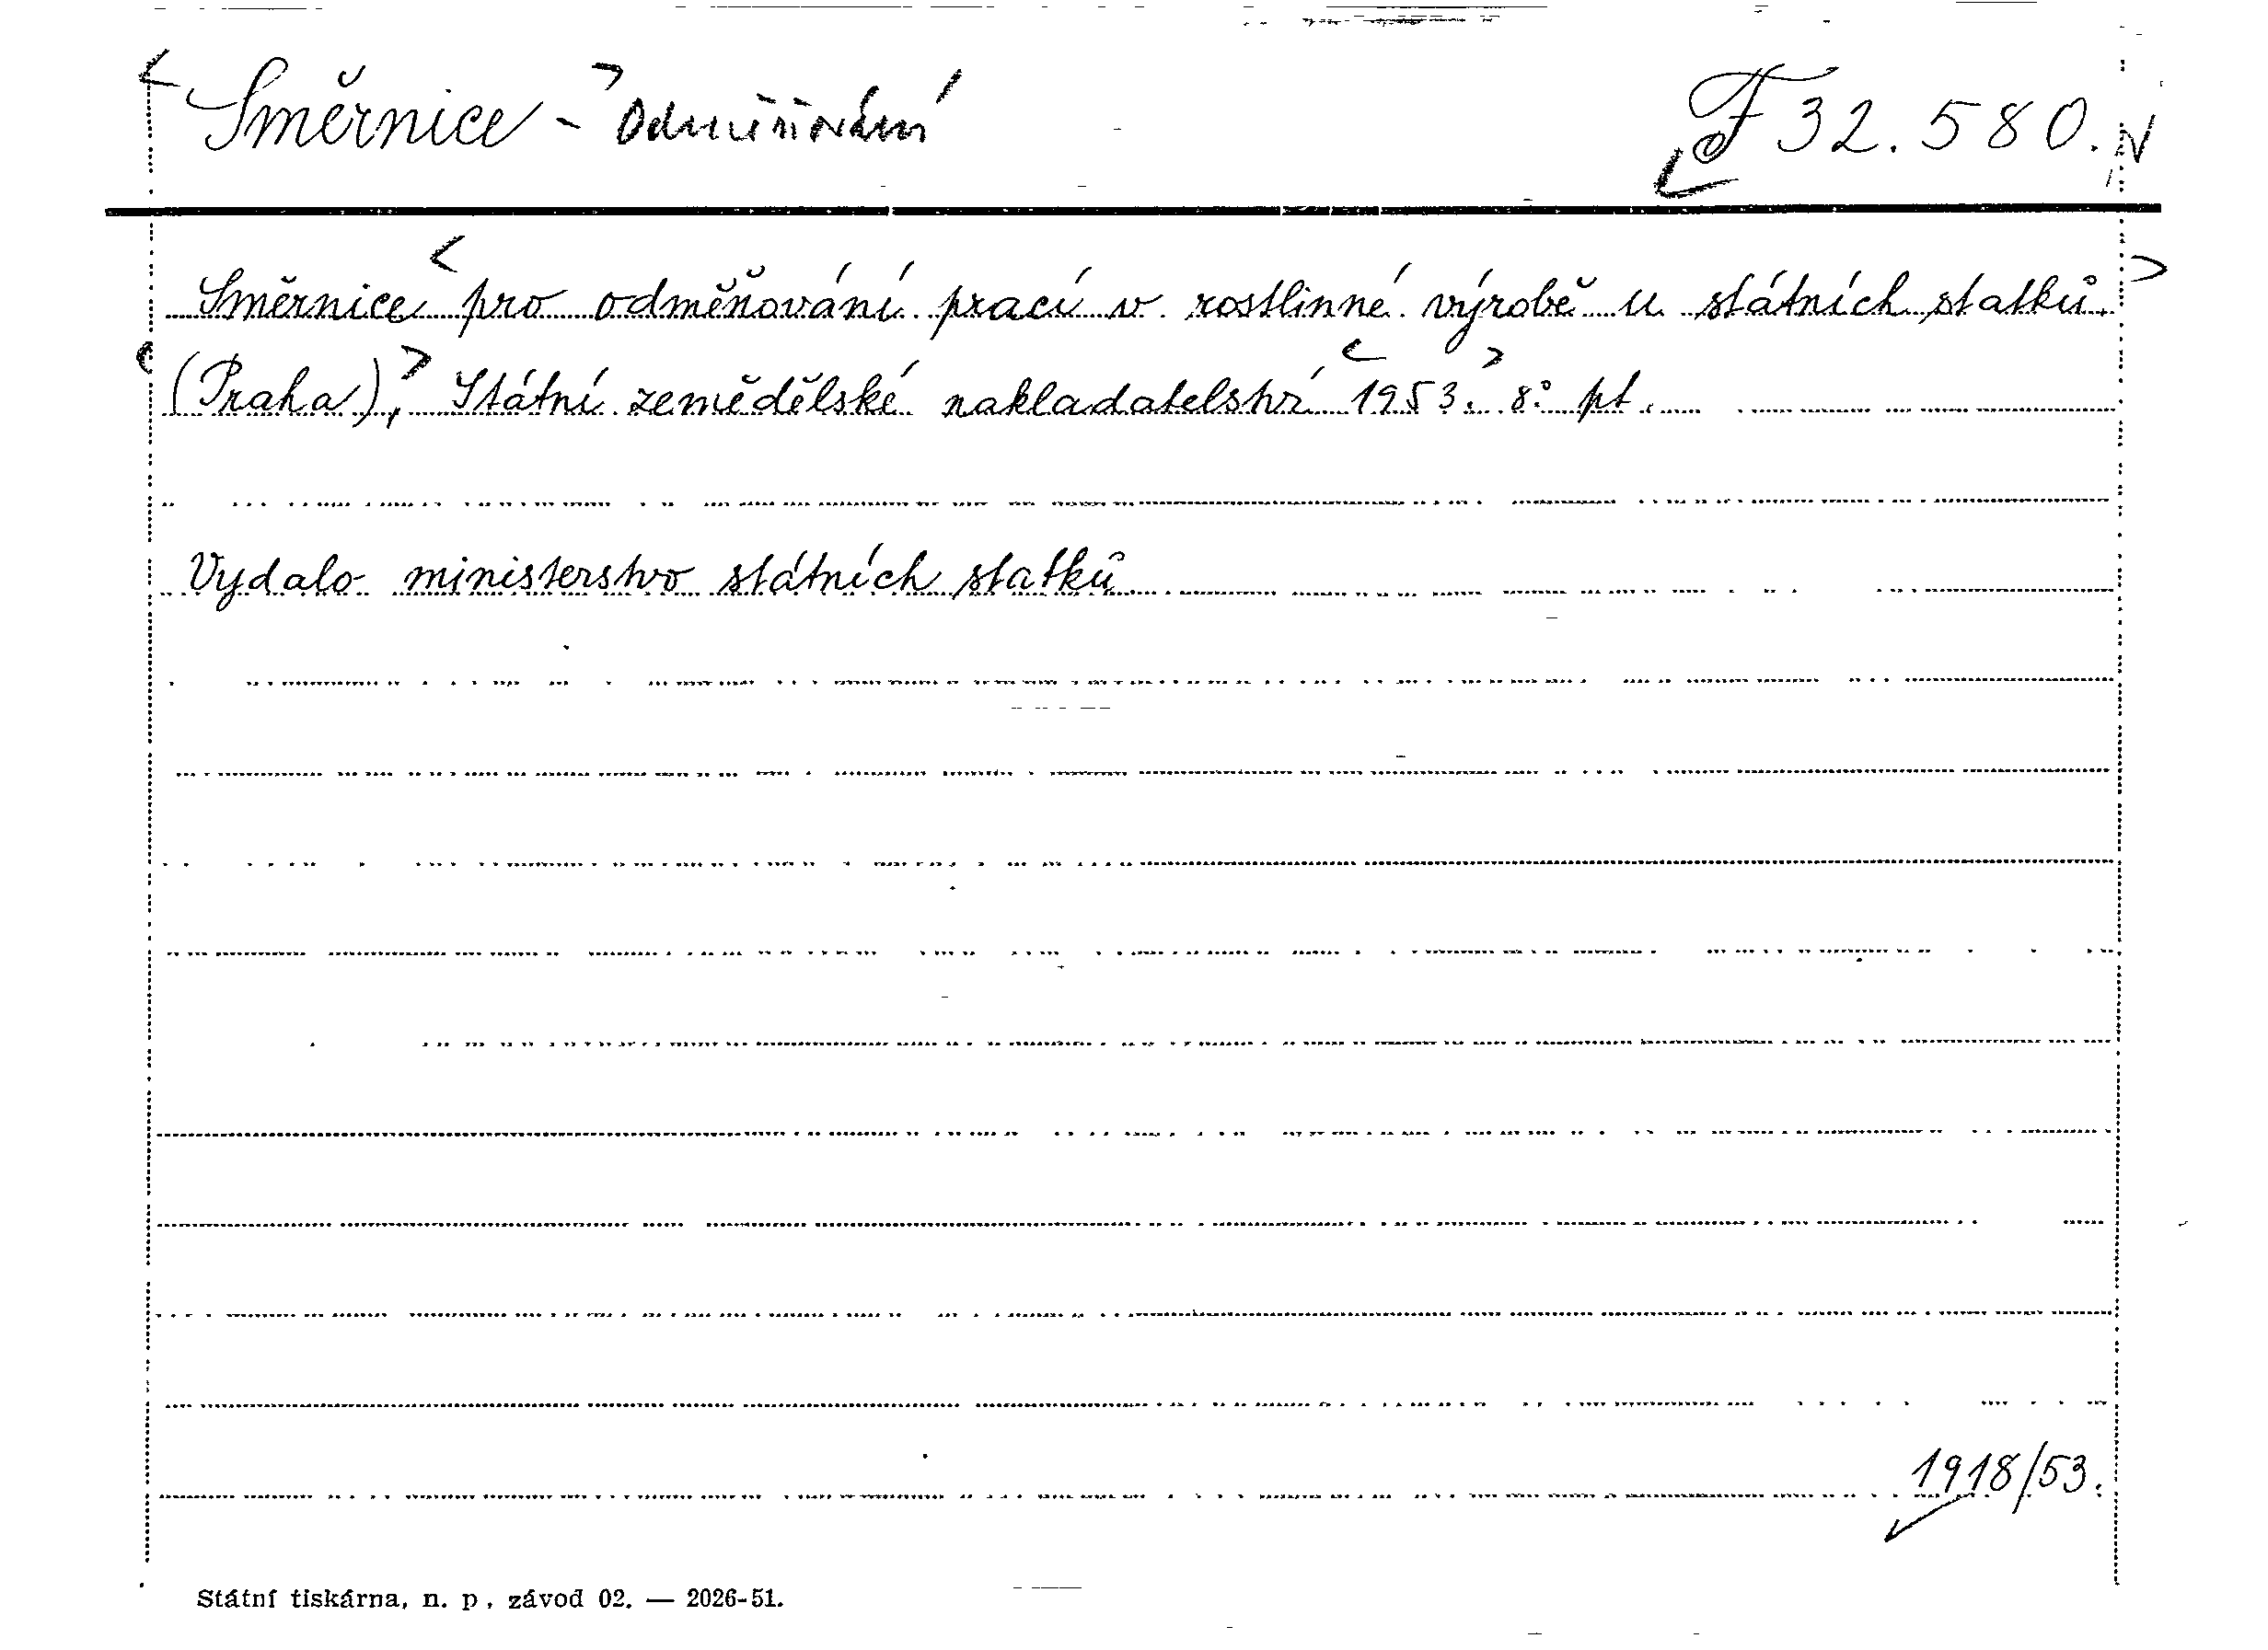 Směrnice - Odměňování F 32.580.
Směrnice pro odměňování prací v rostlinné výrobě u státních statků.
(Praha), Státní zemědělské nakladatelství 1953. 8° pt.
Vydalo ministerstvo státních statků.
1918/53.
Státní tiskárna, n. p., závod 02. — 2026-51.